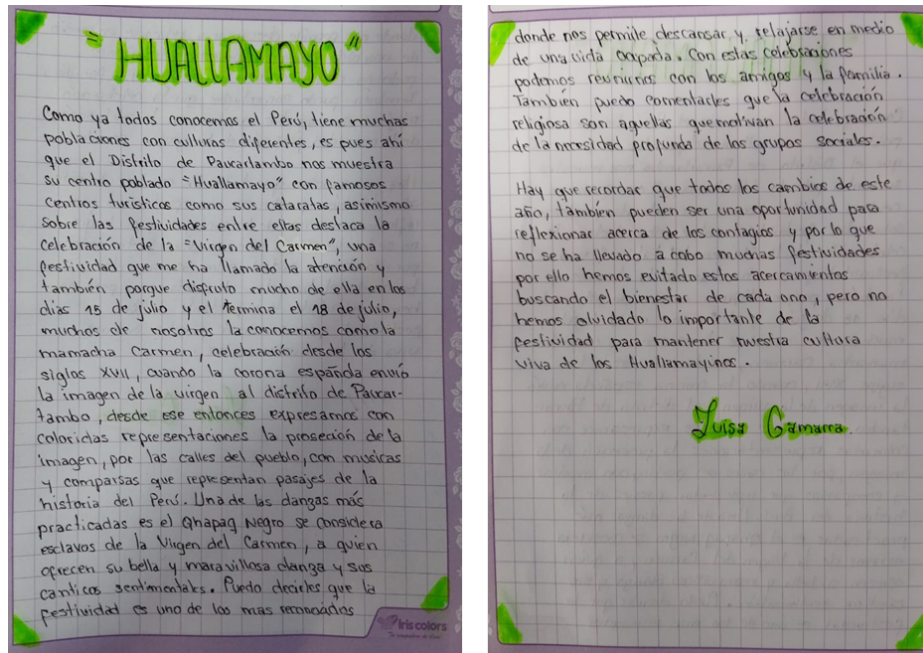 "HUALLAMAYO"
Como ya todos conocemos el Perú, tiene muchas
poblaciones con culturas diferentes, es pues ahí
que el Distrito de Paucartambo nos muestra
su centro poblado "Huallamayo" con famosos
centros turísticos como sus cataratas, asimismo
sobre las festividades entre ellas destaca la
celebración de la "Virgen del Carmen", una
festividad que me ha llamado la atención y
también porque disfruto mucho de ella en los
días 15 de julio y el termina el 18 de julio,
muchos de nosotros la conocemos como la
mamacha Carmen, celebración desde los
siglos XVII, cuando la corona españda envió
la imagen de la virgen al distrito de Paucar-
tambo, desde ese entonces expresamos con
coloridas representaciones la proseción de la
imagen, por las calles del pueblo, con musicas
y comparsas que representan pasajes de la
historia del Perú. Una de las danzas más
practicadas es el Qhapaq Negro se considera
esclavos de la Virgen del Carmen, a quien
ofrecen su bella y maravillosa danza y sus
canticos sentimentales. Puedo decirles que la
festividad es uno de los mas reconocidos
Iris colors
donde nos permite descansar y relajarse en medio
de una vida ocupada. Con estas celebraciones
podemos reunirnos con los amigos y la familia.
También puedo comentarles que la celebración
religiosa son aquellas que motivan la celebración
de la necesidad profunda de los grupos sociales.
Hay que recordar que todos los cambios de este
año, también pueden ser una oportunidad para
reflexionar acerca de los contagios y por lo que
no se ha llevado a cabo muchas festividades
por ello hemos evitado estos acercamientos
buscando el bienestar de cada uno, pero no
hemos olvidado lo importante de la
festividad para mantener nuestra cultura
viva de los Huallamayinos.
Luisa Gamarra.